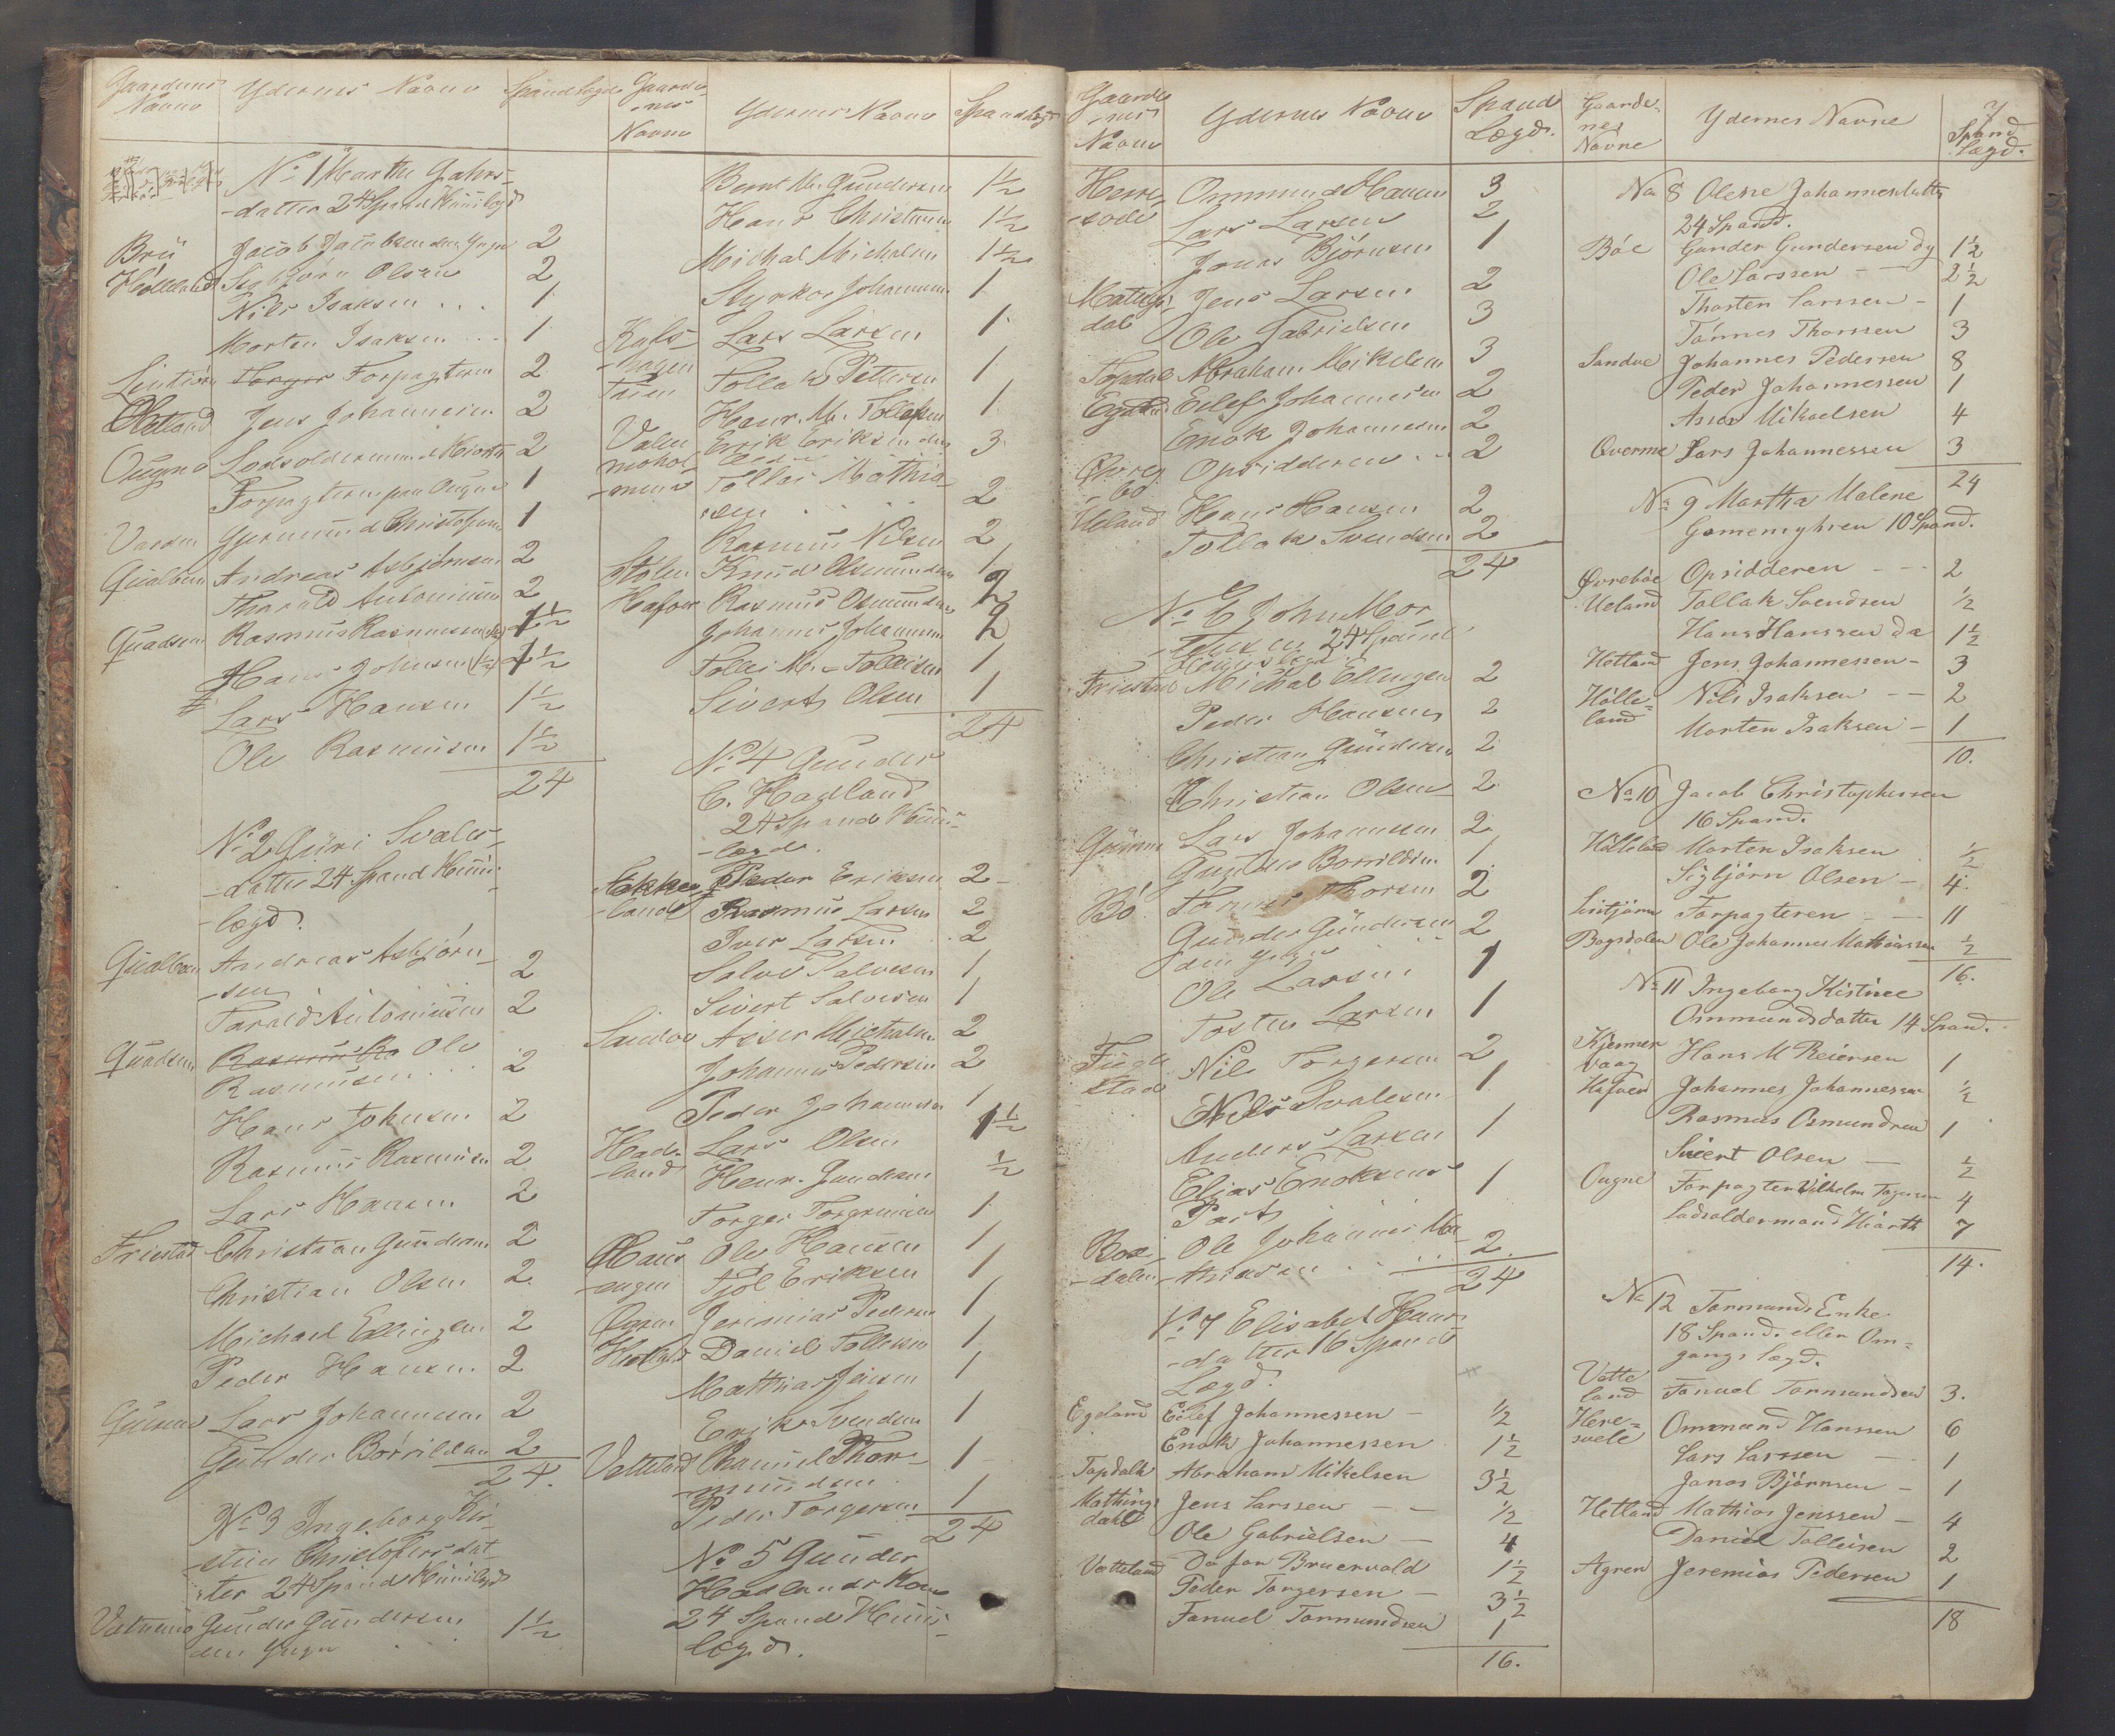 Gaardenes Navne
Ydernes Navne
Spandlægd
No 1 Marthe Gahrs-
-datter 24 Spand Huuslægd
Brü Jacob Jacobsen den Yngre 2
Hölleland Sigbjørn Olsen 2
Nils Isaksen . . . 1
Morten Isaksen . . . 1
Lintjörn Forpagteren 2
Hetland Jens Johannesen 2
Ougne Lodsoldermand Hiorth 2
Forpagteren paa Ougne 1
Gjermund Christofersen 1
Qualbein Andreas Asbjörnsen 2
Tharald Antoniussen 2
Quadsem Rasmus Rasmussen 1½
Hans Johnsen 1½
Lars Hansen 1½
Ole Rasmussen 1½
24
No 2 Guri Svales-
-datter 24 Spand Huus-
-lægd.
Qualbein Andreas Asbjörn-
-sen 2
Tarald Antoniussen 2
Quadsem Ole
Rasmussen . . . 2
Hans Johnsen 2
Rasmus Rasmussen 2
Lars Hansen 2
Friestad Christian Gundersen 2
Christian Olsen 2
Michael Ellingsen 2
Peder Hansen 2
Lars Johannesen 2
Gunder Borrildsen 2
24.
No 3 Ingeborg Kir-
-stine Christofersdat-
-ter 24 Spand Huuslægd
Gunder Gundersen
den Yngre 1½
Gaarde-
-nes
Navne
Ydernes Navne
Spandlægd
Bernt M. Gundersen 1½
Hans Christensen 1½
Michal Michalsen 1½
Styrkor Johannesen 1
Lars Larsen 1
Tollak Pettersen 1
Hans M. Tollefsen 1
Erik Eriksen den
3
Tollei Mathia-
-sen . . . 2
Rasmus Nilsen 2
Stölen Knud Osmundsen 1
Hafsöe Rasmus Osmundsen ½
Johannes Johannesen ½
Tollei M. Tolleisen 1
Sivert Olsen 1
24
No 4 Gunder
C. Hadland
24 Spand Huus-
-lægd.
Stokke-
-land Peder Eriksen 2
Rasmus Larsen 2
Iver Larsen . . 2
Salve Salvesen 1
Sivert Salvesen 1
Sandve Asser Michalsen 2
Johannes Pedersen 2
Peder Johannesen 1
Had-
-land Lars Olsen 1½
Henr. Gundersen ½
Torger Torgersen 1
Ole Hansen 1
Tjöl Eriksen 1
Ogren Jeremias Pedersen 1
Hetland Daniel Tollevsen 1
Matthias Jensen 1
Erik Svendsen 1
Vatteland Thor-
-mundsen 1
Peder Torgersen 1
24
No 5 Gunder
Hadlands Kone
24 Spand Huus-
lægd.
Gaarde-
-nes
Navne
Ydernes Navne
Spand
Lægd.
Herre-
-svele Ommund Hansen 3
Lars Larsen 2
Jonas Björnsen 1
Matings-
dal Jens Larsen 2
Ole Gabrielsen 3
Topdal Abraham Mikelsen 3
Egeland Eilef Johannesen 2
Enok Johannesen 2
Øvre-
-bö Opsidderen . . 2
Ueland Hans Hansen 2
Tollak Svendsen 2
24
No 6 John Mor-
-tensen 24 Spand
Huuslægd.
Friestad Michal Ellingsen 2
Peder Hansen 2
Christian Gundersen 2
Christian Olsen 2
Lars Johannesen 2
Gunder Borrildsen 1
Bö Tönnes Thorsen 2
Gunder Gundersen
den yngre 2
Ole Larsen 1
Tosten Larsen 1
Fuge-
stad Nils Torgersen 2
Nils Svalesen 1
Anders Larsen 1
Elias Enoksens
Part 1
Box-
-dalen Ole Johannes Ma-
-thiasen . . 2
24
No 7 Elisabet Hans-
-datter 16 Spand
Lægd.
Egeland Eilef Johannessen – ½
Enok Johannessen 1½
Topdahl Abraham Mikelsen 3½
Mathings
dahl Jens Larssen – – ½
Ole Gabrielsen – 4
Vatteland Do for Bruervold 1½
Peder Torgersen – 3½
Fanuel Tormundsen 1
16.
Gaarde-
nes
Navne
Ydernes Navne
7
Spand
Lægd.
No 8 Olene Johannesdatter
24 Spand.
Böe Gunder Gundersen dy 1½
Ole Larssen – – 2½
Thorten Larssen – 1
Tönnes Thorssen 3
Sandve Johannes Pederssen 8
Peder Johannessen 1
Asser Mikaelsen 4
Qverme Lars Johannessen 3
24
No 9 Martha Malene
Gomemyhren 10 Spand.
Øvreböe Opsidderen – – – 2
Ueland Tollak Svendsen ½
Hans Hanssen da 1½
Hetland Jens Johannessen – 3
Hölle-
land Nils Isaksen – – 2
Morten Isaksen – 1
10.
No 10 Jacob Christophersen
16 Spand.
Hölleland Morten Isaksen ½
Sigbjörn Olsen – 4.
Lintjörn Forpagteren – – 11
Bogsdalen Ole Johannes Mathiassen ½
16.
No 11 Ingeborg Kistine
Ommundsdatter 14 Spand.
Kjerner
vaag Hans M Reiersen 1
Hafsøe Johannes Johannessen ½
Rasmus Osmundsen 1
Sivert Olsen – ½
Ougne Forpagter Vilhelm 4
Lodsoldermand Hiorth 7
14.
No 12 Tormunds Enke
18 Spand. eller Om-
gangs lægd.
Vatte
land Fanuel Tormundsen 3.
Here-
svele Ommund Hanssen 6
Lars Larssen – 1
Jonas Björnsen – 1
Hetland Mathias Jenssen – 4
Daniel Tolleisen 2
Agren Jeremias Pedersen 1
18